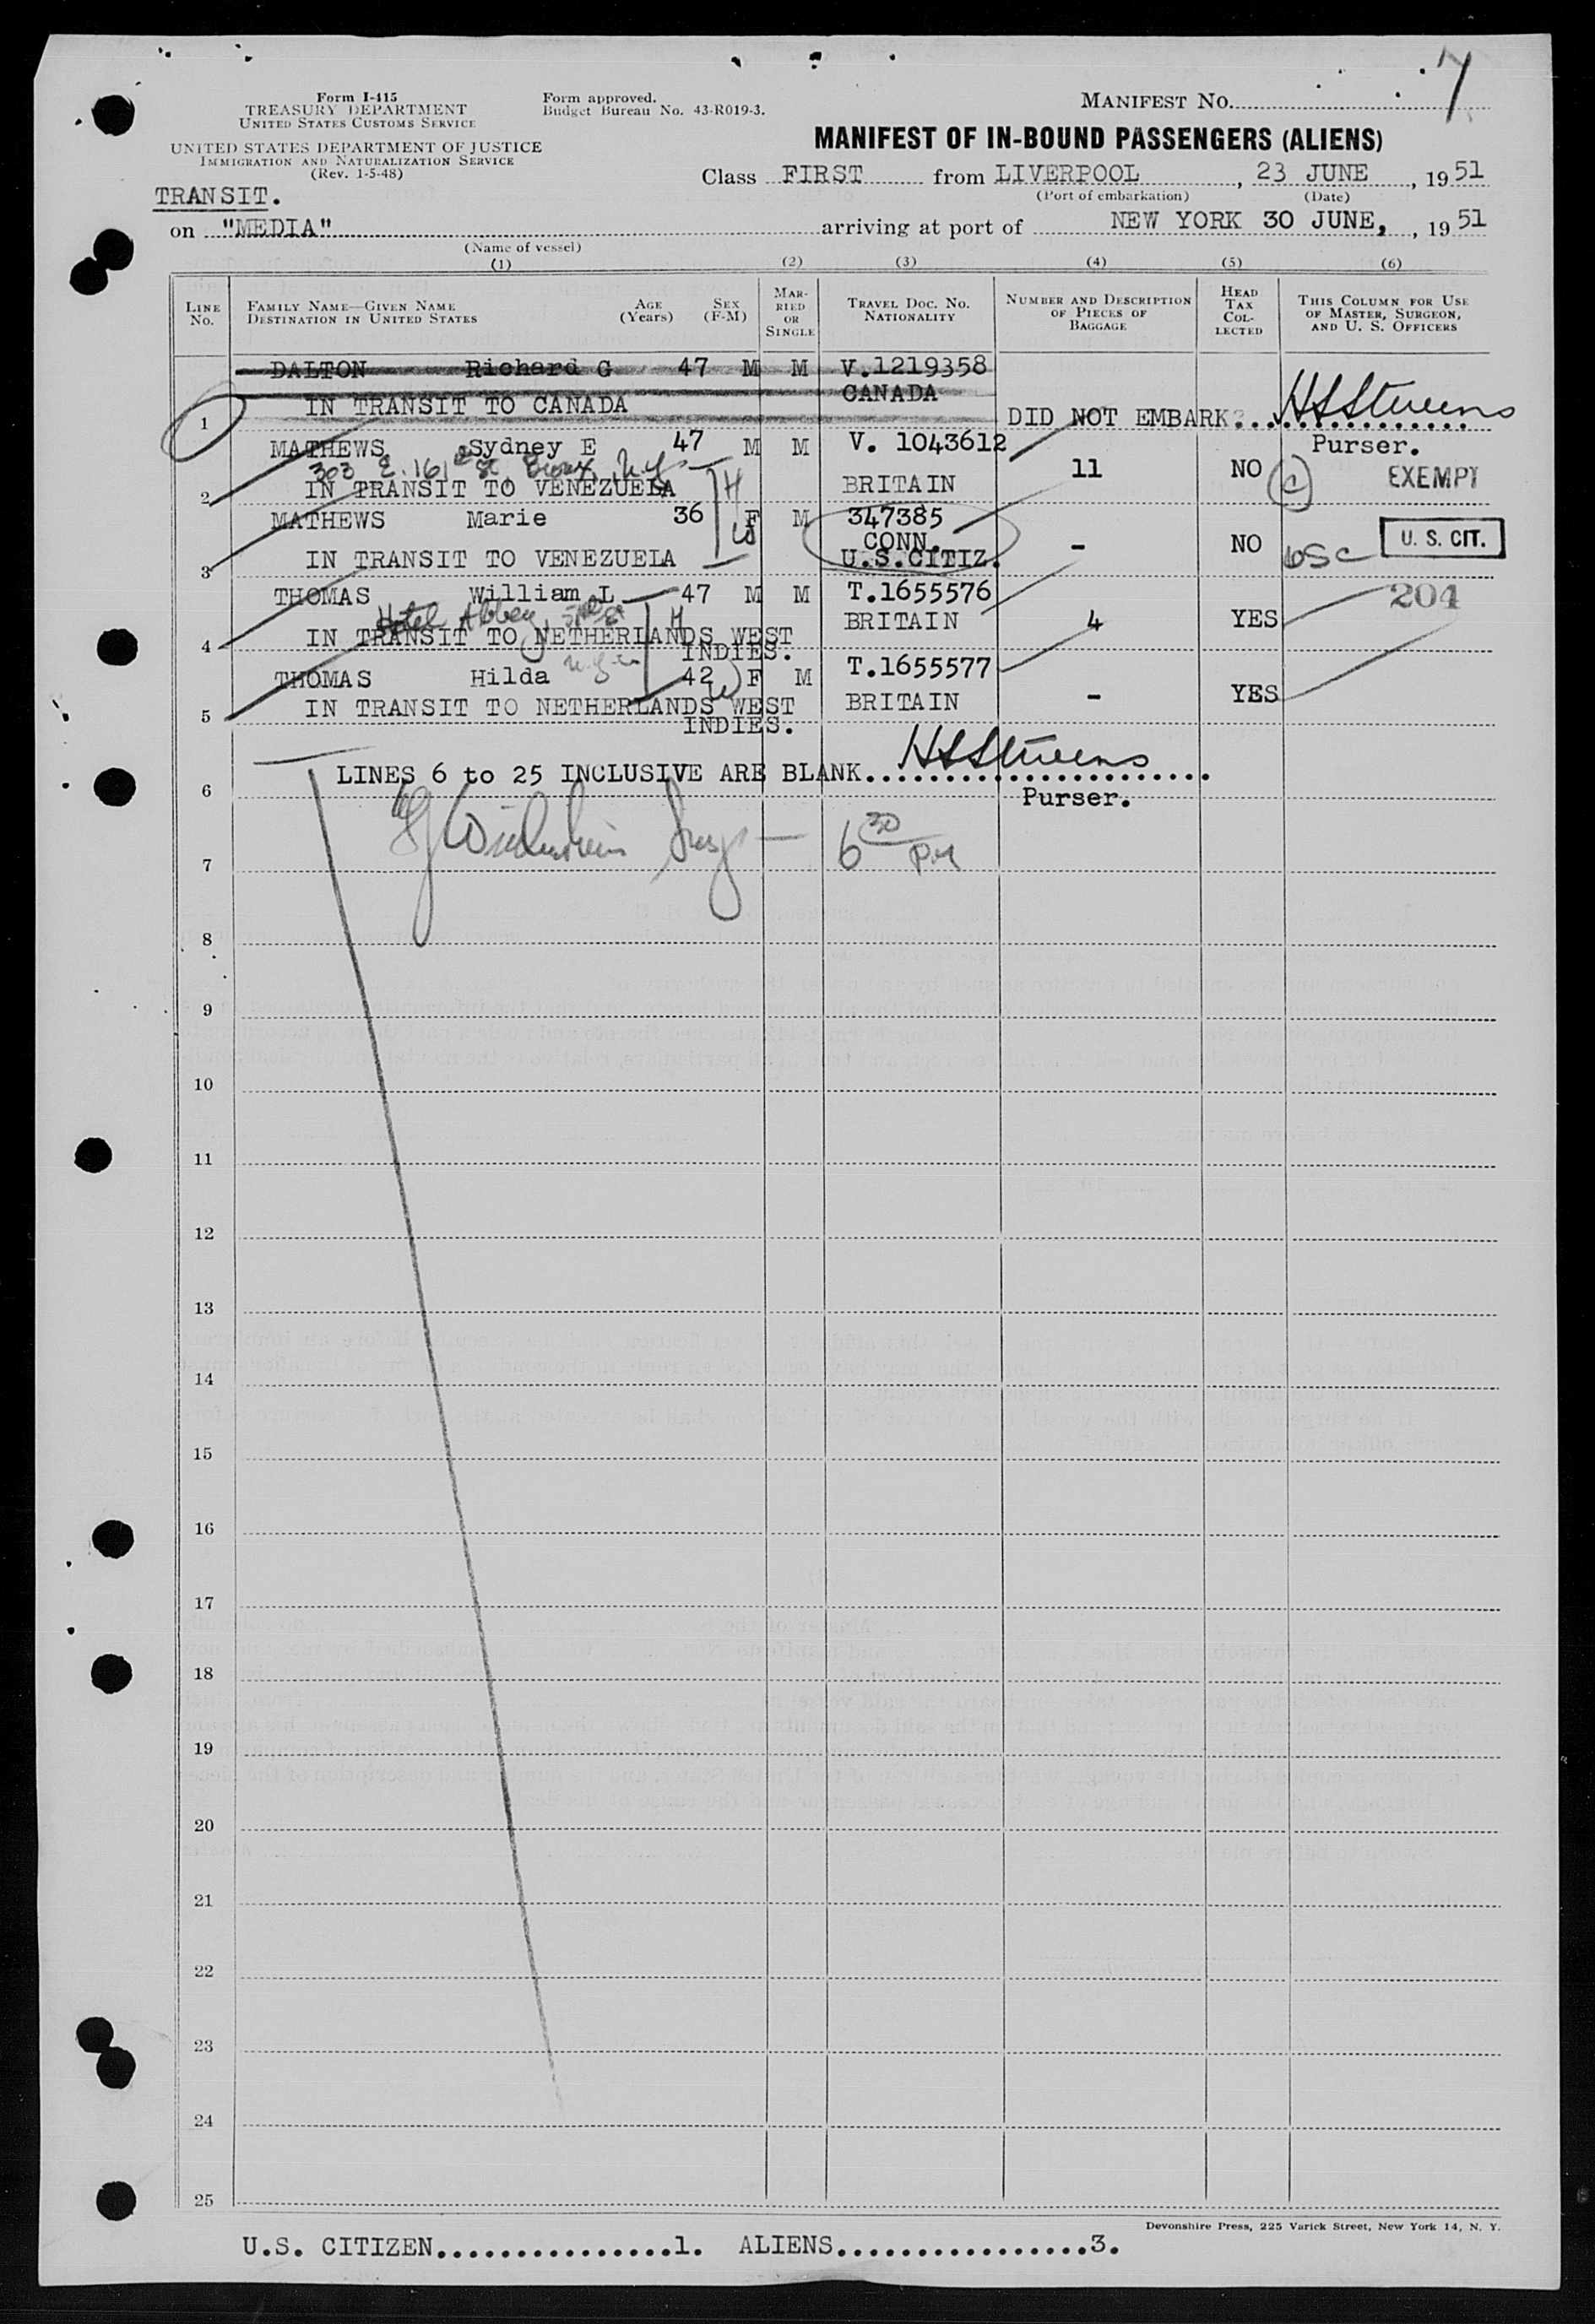 7
Form I-415
TREASURY DEPARTMENT
UNITED STATES CUSTOMS SERVICE
UNITED STATES DEPARTMENT OF JUSTICE
IMMIGRATION AND NATURALIZATION SERVICE
(Rev. 1-5-48)
Form approved.
Budget Bureau No. 43-R019-3.
MANIFEST NO.
MANIFEST OF IN-BOUND PASSENGERS (ALIENS)
Class FIRST from LIVERPOOL, 23 JUNE, 19 51
(Port of embarkation) (Date)
TRANSIT.
on "MEDIA" arriving at port of NEW YORK 30 JUNE, , 19 51
(Name of vessel)
(1) (2) (3) (4) (5) (6)
LINE No. FAMILY NAME—GIVEN NAME DESTINATION IN UNITED STATES AGE (Years) SEX (F-M) MARRIED OR SINGLE TRAVEL DOC. NO. NATIONALITY NUMBER AND DESCRIPTION OF PIECES OF BAGGAGE HEAD TAX COLLECTED THIS COLUMN FOR USE OF MASTER, SURGEON, AND U. S. OFFICERS
DALTON Richard G 47 M M V.1219358
CANADA
1 IN TRANSIT TO CANADA DID NOT EMBARK. HSStevens
Purser.
MATHEWS Sydney E 47 M M V. 1043612
303 E. 161st St, Bronx, N.Y.
2 IN TRANSIT TO VENEZUELA H BRITAIN 11 NO (C) EXEMPT
MATHEWS Marie 36 F M 347385
W CONN.
3 IN TRANSIT TO VENEZUELA U.S.CITIZ. - NO USC U. S. CIT.
THOMAS William L 47 M M T.1655576
Hotel Abbey, 51st St
4 IN TRANSIT TO NETHERLANDS WEST INDIES. H BRITAIN 4 YES 204
THOMAS Hilda N.Y.C. 42 F M T.1655577
W
5 IN TRANSIT TO NETHERLANDS WEST INDIES. BRITAIN - YES
LINES 6 to 25 INCLUSIVE ARE BLANK. HSStevens
6 Purser.
6 30 PM
7
8
9
10
11
12
13
14
15
16
17
18
19
20
21
22
23
24
25
Devonshire Press, 225 Varick Street, New York 14, N. Y.
U.S. CITIZEN................1. ALIENS................3.